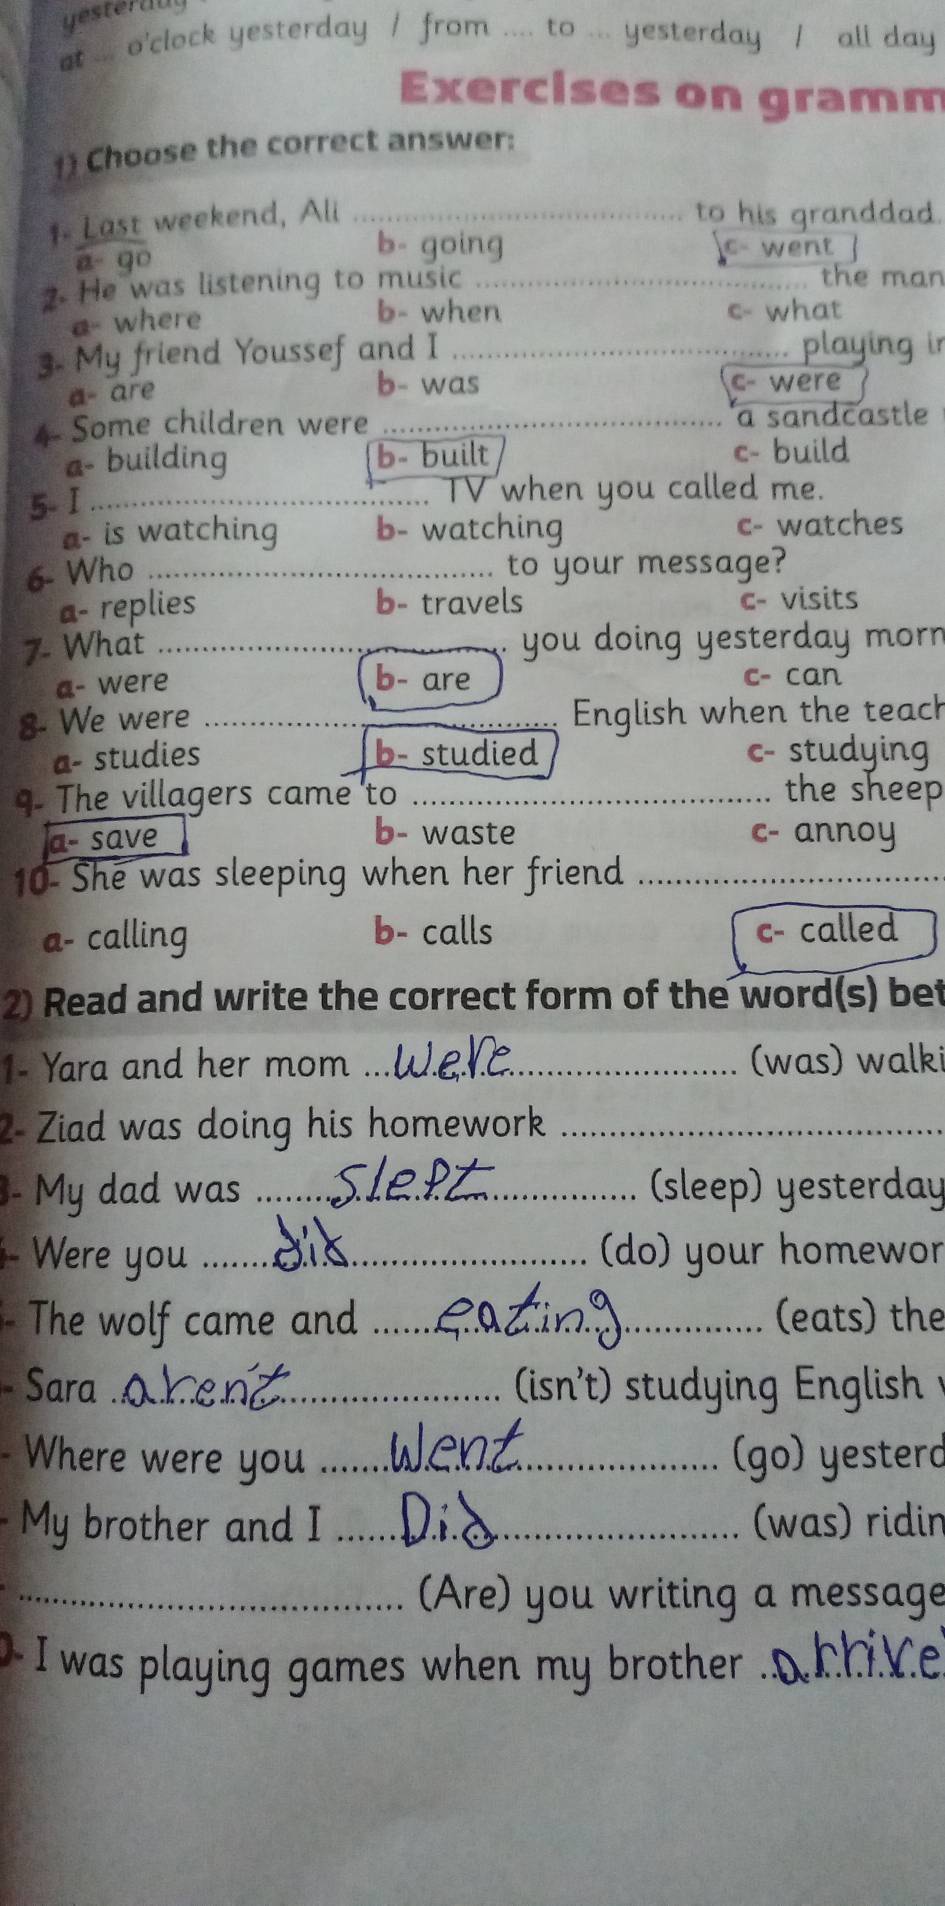 yesterday
at ... o'clock yesterday / from .... to ... yesterday / all day
Exercises on gramm
1) Choose the correct answer:
1- Last weekend, Ali .................... to his granddad.
a- go b- going c- went
2- He was listening to music .................... the man
a- where b- when c- what
3- My friend Youssef and I .................... playing in
a- are b- was c- were
4- Some children were .................... a sandcastle
a- building b- built c- build
5- I .................... TV when you called me.
a- is watching b- watching c- watches
6- Who .................... to your message?
a- replies b- travels c- visits
7- What .................... you doing yesterday morn
a- were b- are c- can
8- We were .................... English when the teach
a- studies b- studied c- studying
9- The villagers came to .................... the sheep
a- save b- waste c- annoy
10- She was sleeping when her friend ....................
a- calling b- calls c- called
2) Read and write the correct form of the word(s) bet
1- Yara and her mom ... were .................... (was) walki
2- Ziad was doing his homework ....................
3- My dad was ........ slept .................... (sleep) yesterday
- Were you ....... did .................... (do) your homewor
- The wolf came and ...... eating .................... (eats) the
- Sara .. arent .................... (isn't) studying English
- Where were you ....... went .................... (go) yesterd
- My brother and I ...... Did .................... (was) ridin
- .................... (Are) you writing a message
0- I was playing games when my brother .. arrive